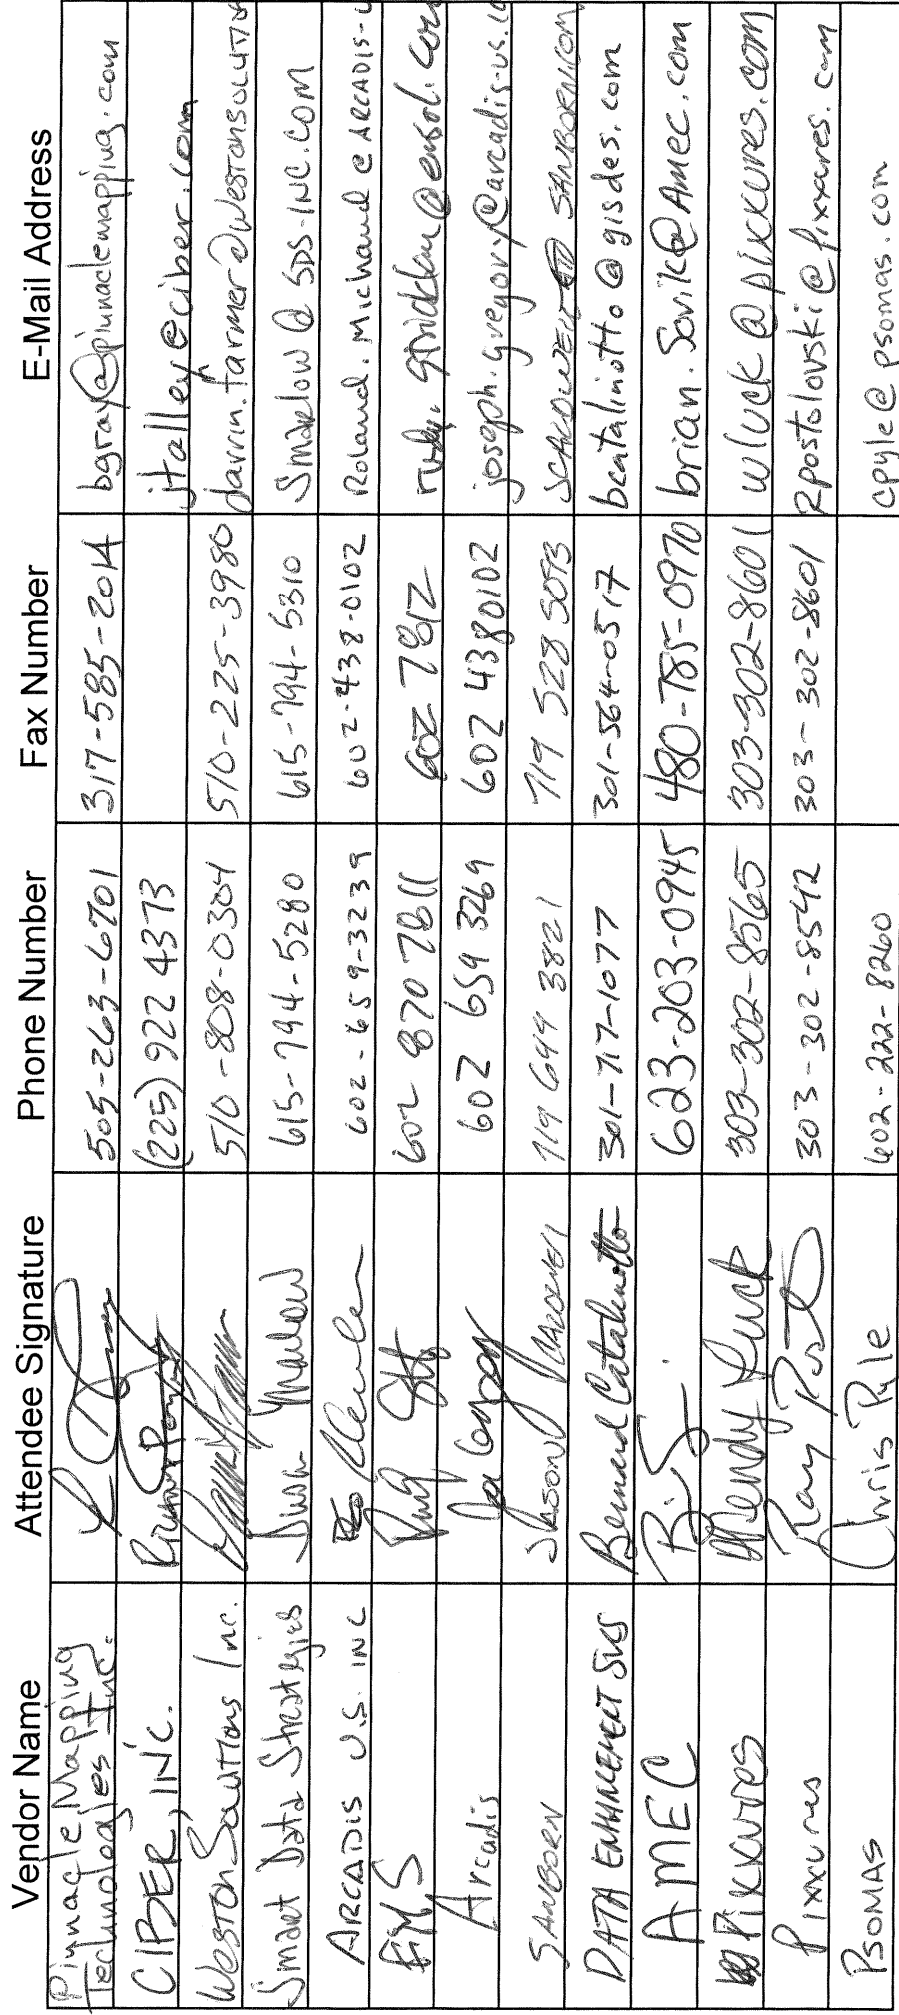 Vendor Name Attendee Signature Phone Number Fax Number E-Mail Address
Pinnacle Mapping
Technologies Inc. 505-263-6701 317-585-2014 bgray@pinnaclemapping.com
CIBER, INC. (225) 922 4373 jtalley@ciber.com
Weston Solutions Inc. 510-808-0304 510-225-3980 darrin.farmer@westonsolutio
Smart Data Strategies Susan Marlow 615-794-5280 615-794-5310 Smarlow @ SDS-INC.COM
ARCADIS U.S. INC 602-659-3239 602-438-0102 Roland.Michaud@ARCADIS-U
602 870 7811 602 7812
Arcadis Joe Gregory 602 659 3269 602 4380102 joseph.gregory@arcadis-us.co
SANBORN JASON 719 649 3821 719 528 5093 SANBORN.COM
DATA ENHANCEMENT SVCS Bernard Catalinotto 301-717-1077 301-564-0517 bcatalinotto@gisdes.com
AMEC 623-203-0945 480-785-0970 brian.Sovik@Amec.com
Pixxures Wendy Luck 303-302-8565 303-302-8601 wluck@pixxures.com
Pixxures Ray 303-302-8542 303-302-8601 rpostolovski@pixxures.com
PSOMAS Chris Pyle 602-222-8260 cpyle@psomas.com